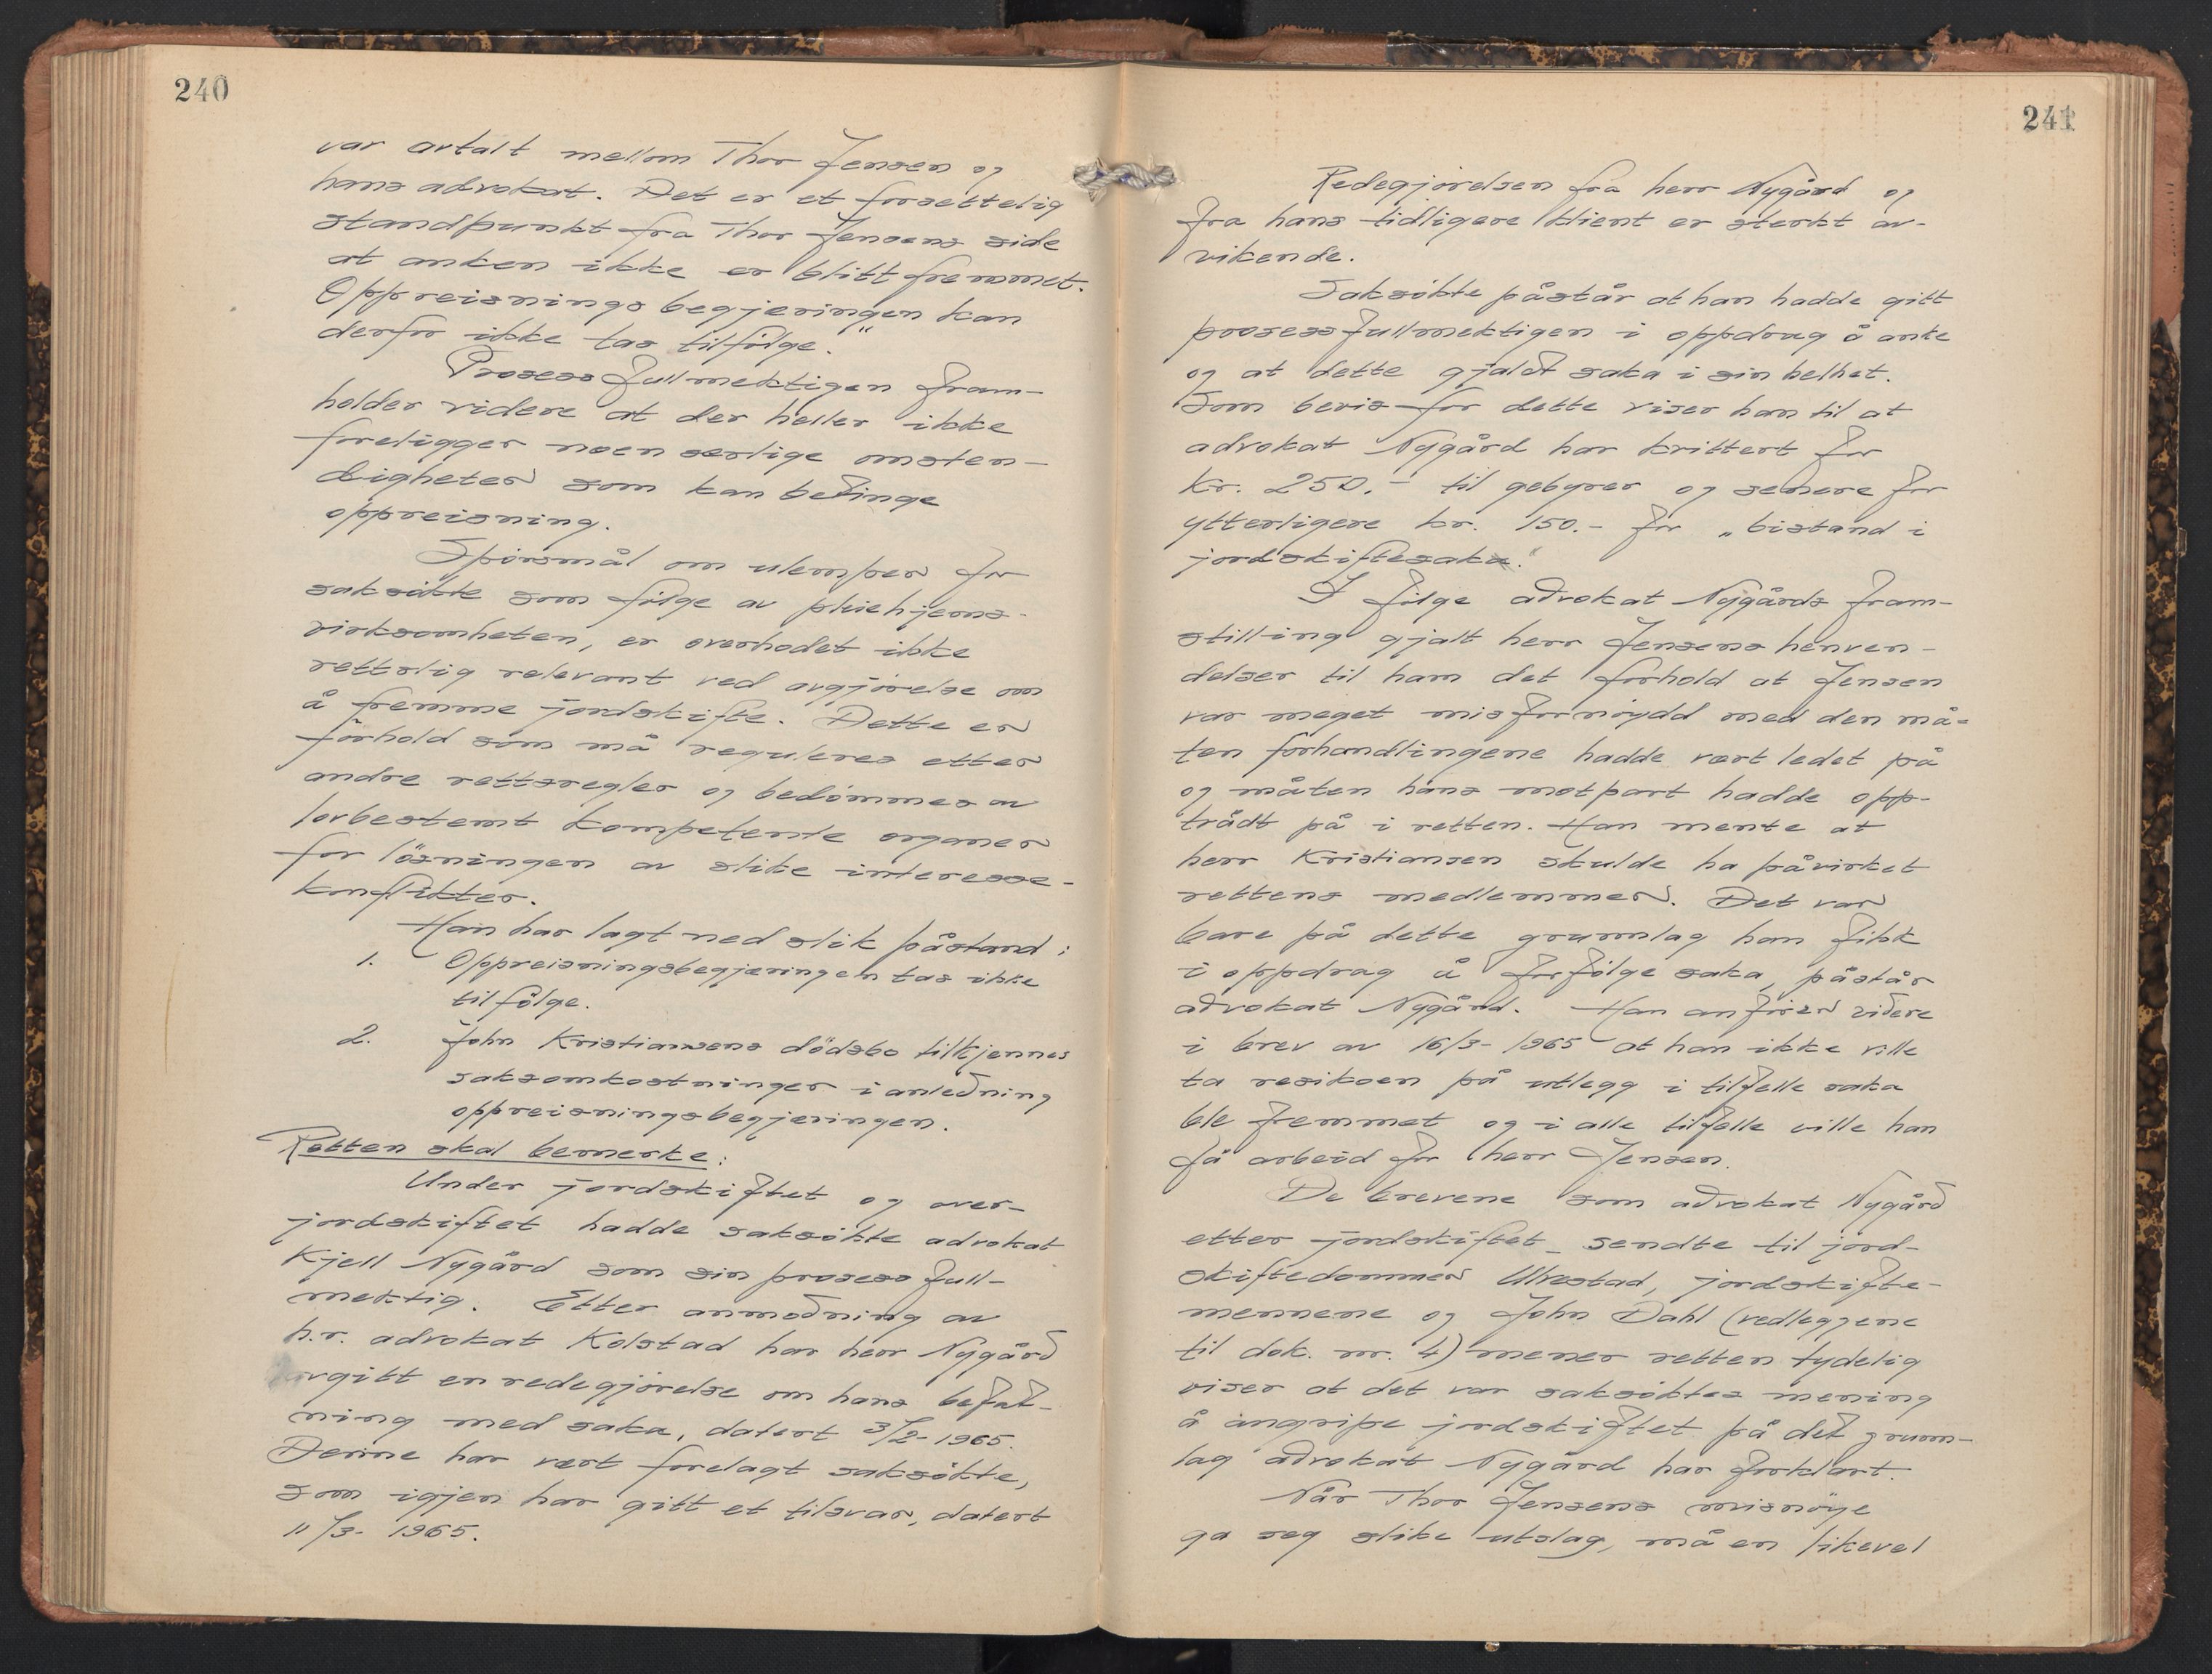 240
var avtalt mellom Thor Jensen og
hans advokat. Det er et forsettelig
standpunkt fra Thor Jensens side
at anken ikke er blitt fremmet.
Oppreisningsbegjeringen kan
derfor ikke tas tilfölge."
Prosessfullmektigen fram-
holder videre at der heller ikke
foreligger noen serlige omsten-
digheter som kan betinge
oppreisning.
Spörsmål om ulemper for
saksökte som fölge av pleiehjems-
virksomheten, er overhodet ikke
rettslig relevant ved avgjörelse om
å fremme jordskifte. Dette er
forhold som må reguleres etter
andre rettsregler og bedömmes av
lovbestemt kompetente organer
for lösningen av slike interesse-
konflikter.
Han har lagt ned slik påstand:
1. Oppreisningsbegjeringen tas ikke
tilfölge.
2. John Kristiansens dödsbo tilkjennes
saksomkostninger i anledning
oppreisningsbegjeringen.
Retten skal bemerke:
Under jordskiftet og over-
jordskiftet hadde saksökte advokat
Kjell Nygård som sin prosessfull-
mektig. Etter anmodning av
h.r. advokat Kolstad har herr Nygård
avgitt en redegjörelse om hans befat-
ning med saka, datert 3/2-1965.
Denne har vert forelagt saksökte,
som igjen har gitt et tilsvar, datert
11/3- 1965.
241
Redegjörelsen fra herr Nygård og
fra hans tidligere klient er sterkt av-
vikende.
Saksökte påstår at han hadde gitt
prosessfullmektigen i oppdrag å anke
og at dette gjaldt saka i sin helhet.
Som bevis for dette viser han til at
advokat Nygård har kvittert for
kr. 250.- til gebyrer og senere for
ytterligere kr. 150.- for „bistand i
jordskiftesaka."
I fölge advokat Nygårds fram-
stilling gjalt herr Jensens henven-
delser til ham det forhold at Jensen
var meget misfornöydd med den må-
ten forhandlingene hadde vert ledet på
og måten hans motpart hadde opp-
trådt på i retten. Han mente at
herr Kristiansen skulde ha påvirket
rettens medlemmer. Det var
bare på dette grunnlag han fikk
i oppdrag å forfölge saka, påstår
advokat Nygård. Han anförer videre
i brev av 16/3- 1965 at han ikke ville
ta resikoen på utlegg i tilfelle saka
ble fremmet og i alle tilfelle ville han
få arbeid for herr Jensen.
De brevene som advokat Nygård
etter jordskiftet sendte til jord-
skiftedommer Ulvestad, jordskifte-
mennene og John Dahl (vedleggene
til dok. nr. 4) mener retten tydelig
viser at det var saksöktes mening
å angripe jordskiftet på det grunn-
lag advokat Nygård har forklart.
Når Thor Jensens misnöye
ga seg slike utslag, må en likevel